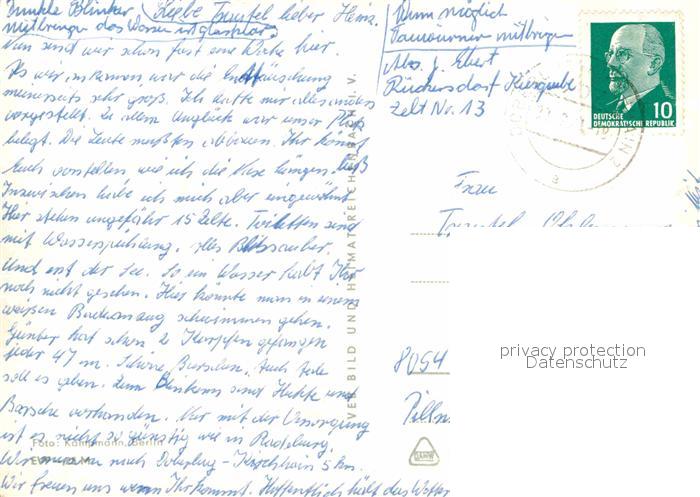 Dunkle Blinker Liebe Traudel, lieber Heinz.
mitbringen das Wasser ist glasklar.
Nun sind wir schon fast eine Woche hier.
Als wir ankamen war die Enttäuschung
meinerseits sehr groß. Ich hatte mir alles anders
vorgestellt. Zu allem Unglück war unser Platz
belegt. Die Leute mußten abbauen. Ihr könnt
Euch vorstellen wie ich die Nase hängen ließ
Inzwischen habe ich mich aber eingewöhnt
Hier stehen ungefähr 15 Zelte. Toiletten sind
mit Wasserspühlung. alles Blitzsauber.
Und erst der See. So ein Wasser habt Ihr
noch nicht gesehen. Hier könnte man in einem
weißen Badeanzug schwimmen gehen.
Günter hat schon 2 Karpfen gefangen
jeder 47 cm. Schöne Barsche. Auch Aale
soll es geben. Zum Blinkern sind Hechte und
Barsche vorhanden. Nur mit der Versorgung
ist es nicht so günstig wie in
Wir müssen nach Doberlug-Kirchhain 5 km.
Wir freuen uns wenn Ihr kommt. Hoffentlich hält das Wetter
Foto: Kühlmann, Berlin
VEB BILD UND HEIMAT REICHENBACH i. V.
Wenn möglich
mitbringen
Abs. J. Ebert
Rückersdorf Kiesgrube
Zelt No. 13
DEUTSCHE
DEMOKRATISCHE REPUBLIK
10
Frau
Traudel
8054
Pilln
privacy protection
Datenschutz